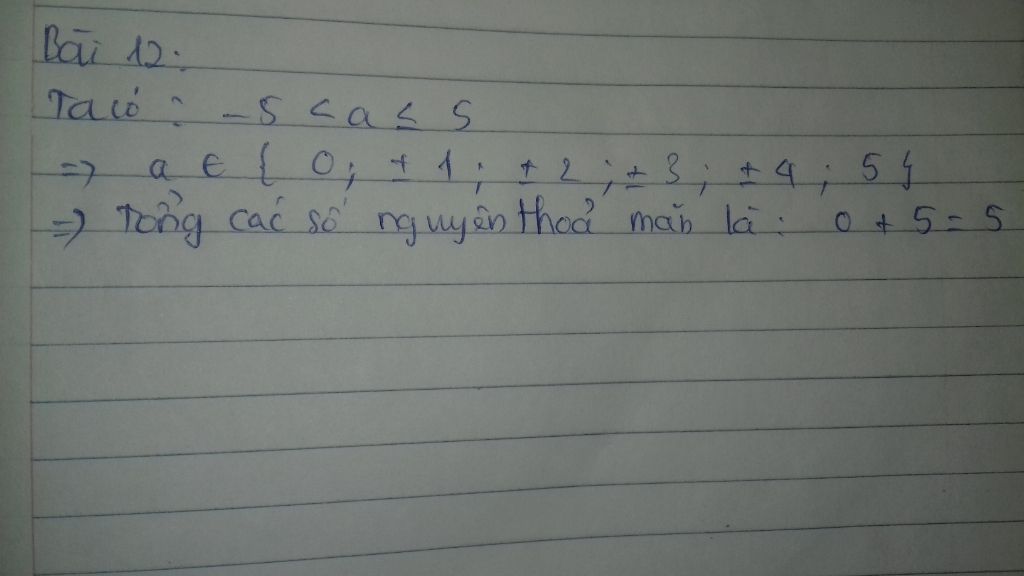 Bài 12:
Ta có : -5 < a ≤ 5
=> a ∈ { 0; ±1; ±2; ±3; ±4; 5}
=> Tổng các số nguyên thoả mãn là: 0 + 5 = 5